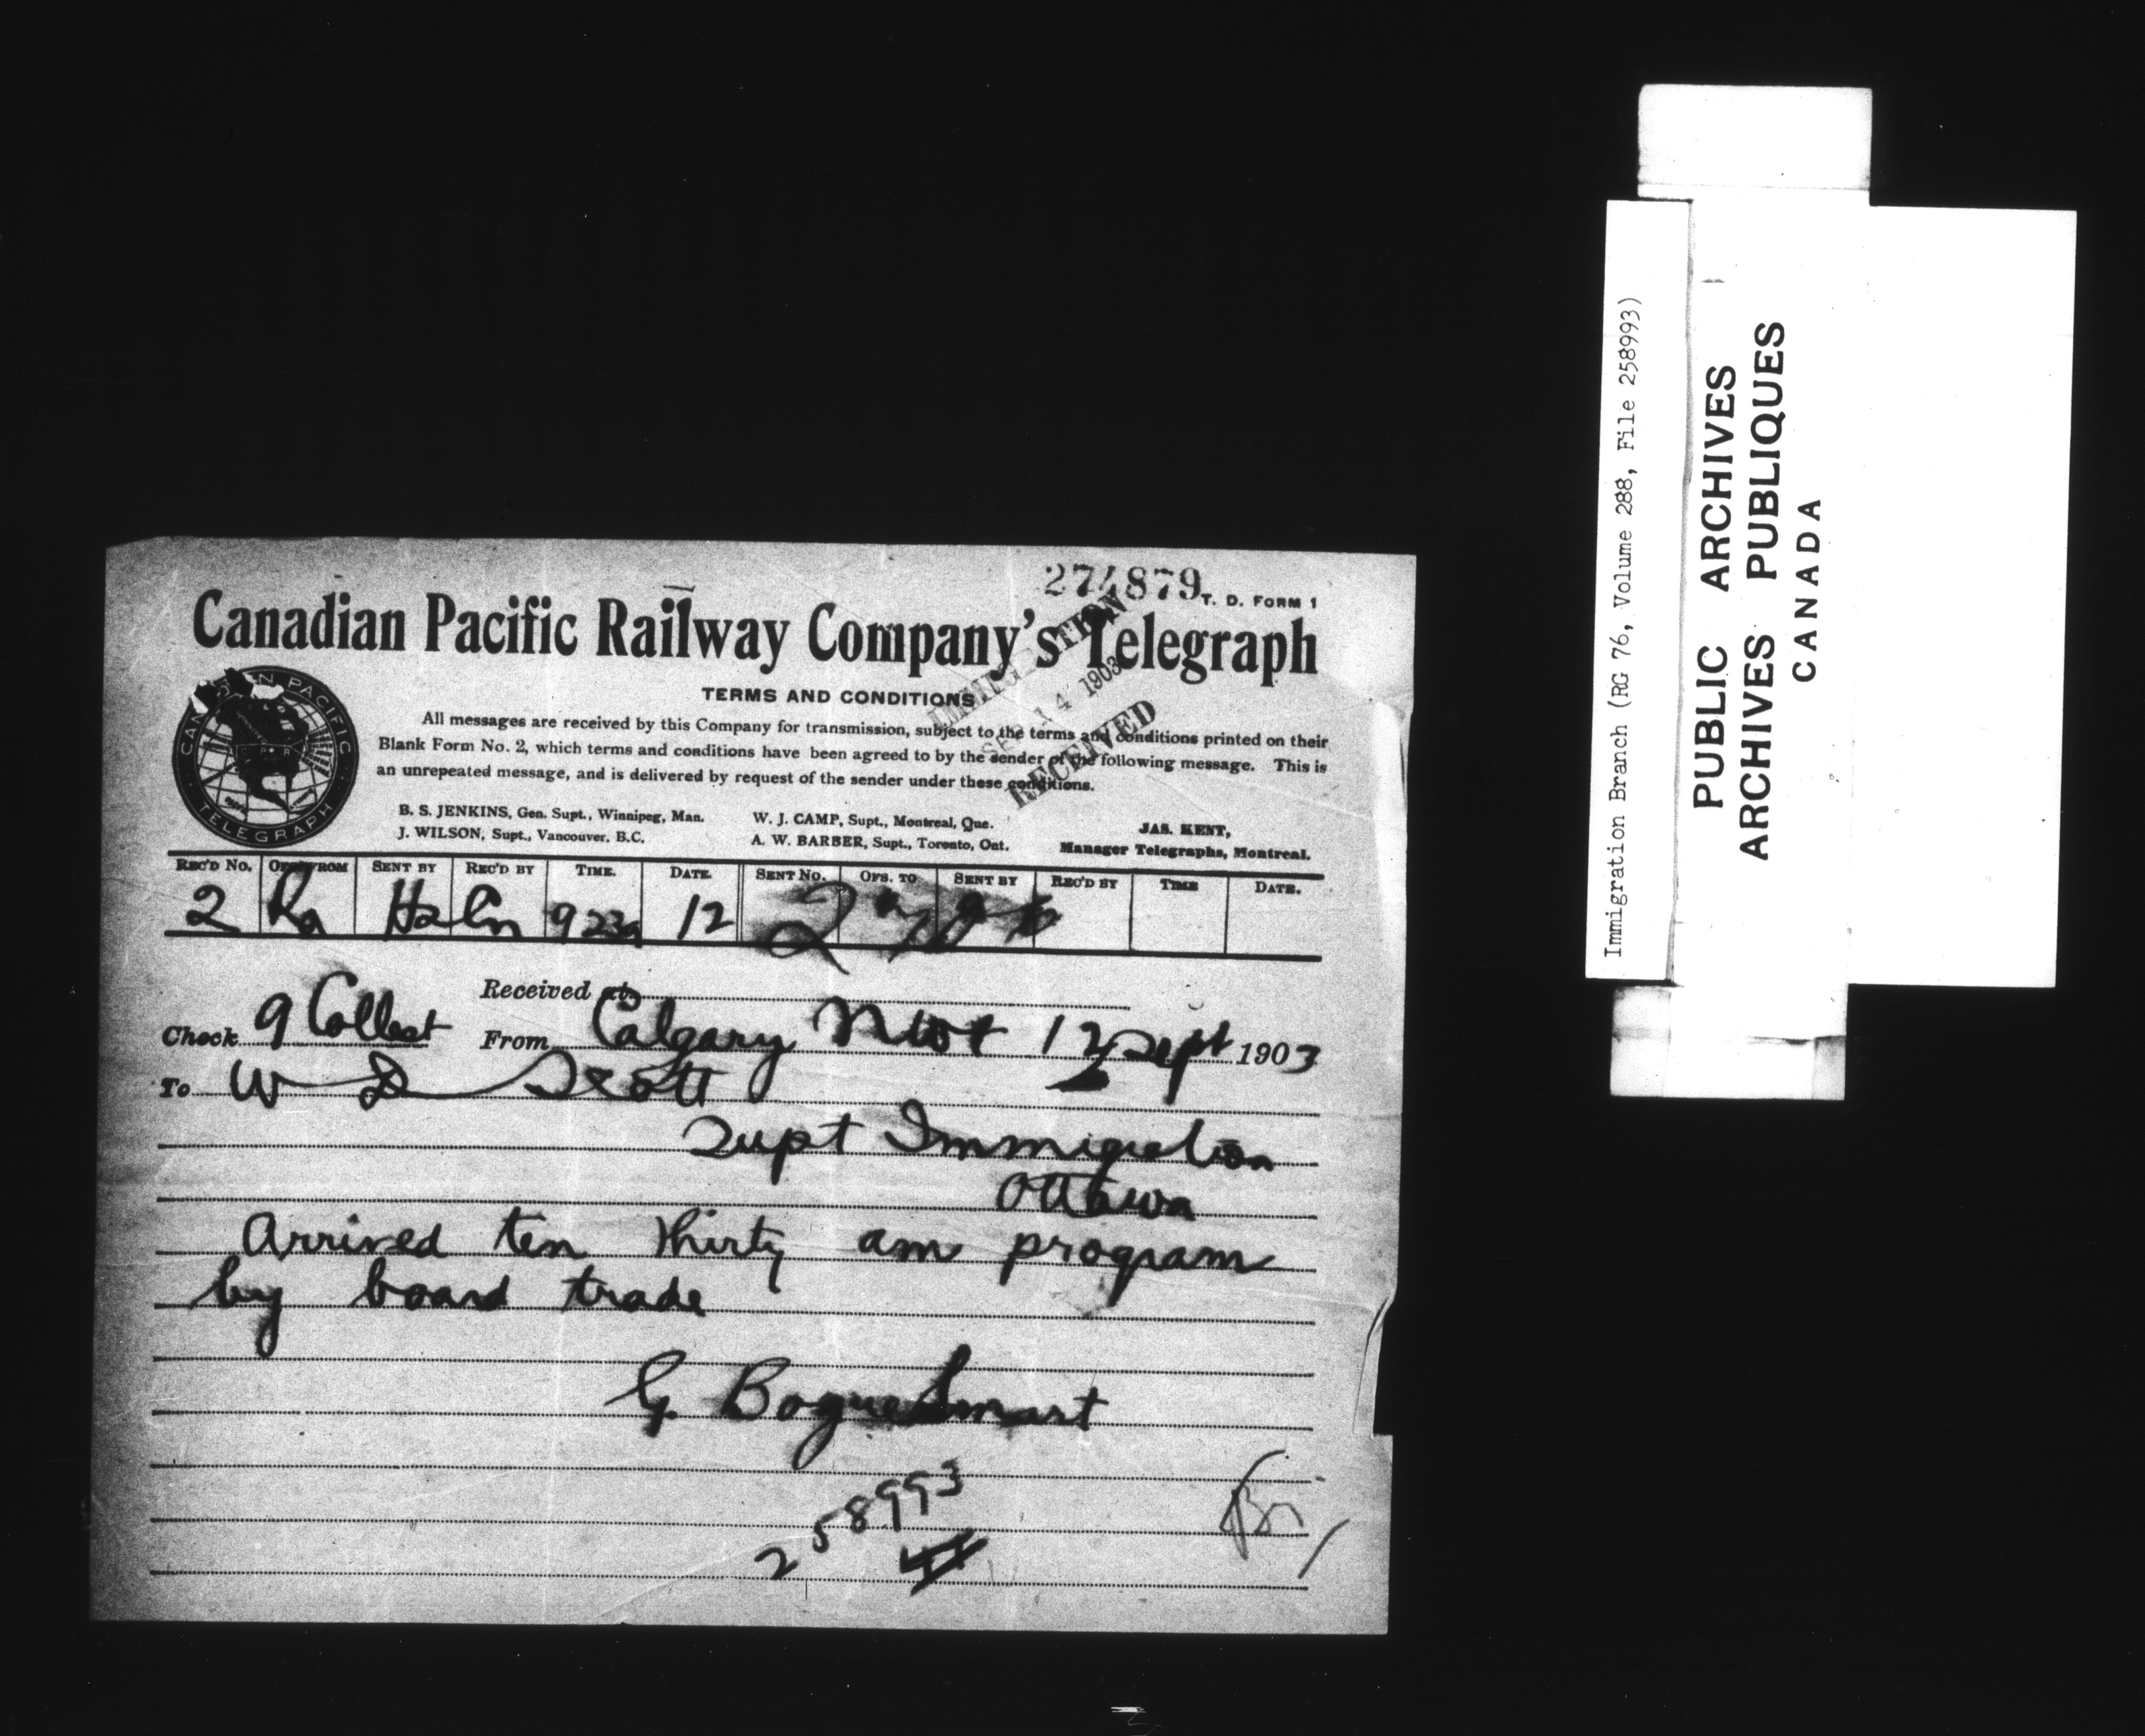 274879
T. D. FORM 1
Canadian Pacific Railway Company's Telegraph
IMMIGRATION
SEP 14 1903
RECEIVED
CANADIAN PACIFIC
TELEGRAPH
TERMS AND CONDITIONS
All messages are received by this Company for transmission, subject to the terms and conditions printed on their
Blank Form No. 2, which terms and conditions have been agreed to by the sender of the following message. This is
an unrepeated message, and is delivered by request of the sender under these conditions.
B. S. JENKINS, Gen. Supt., Winnipeg, Man. W. J. CAMP, Supt., Montreal, Que. JAS. KENT,
J. WILSON, Supt., Vancouver, B.C. A. W. BARBER, Supt., Toronto, Ont. Manager Telegraphs, Montreal.
REC'D NO. OFS. FROM SENT BY REC'D BY TIME. DATE. SENT NO. OFS. TO SENT BY REC'D BY TIME DATE.
2 Ra 923a 12
Received at
Check 9 Collect From Calgary Nwt 12 Sept 1903
To W D Scott
Supt Immigration
Ottawa
Arrived ten thirty am program
by board trade
G. Bogue Smart
258993
Immigration Branch (RG 76, Volume 288, File 258993)
PUBLIC ARCHIVES
ARCHIVES PUBLIQUES
CANADA